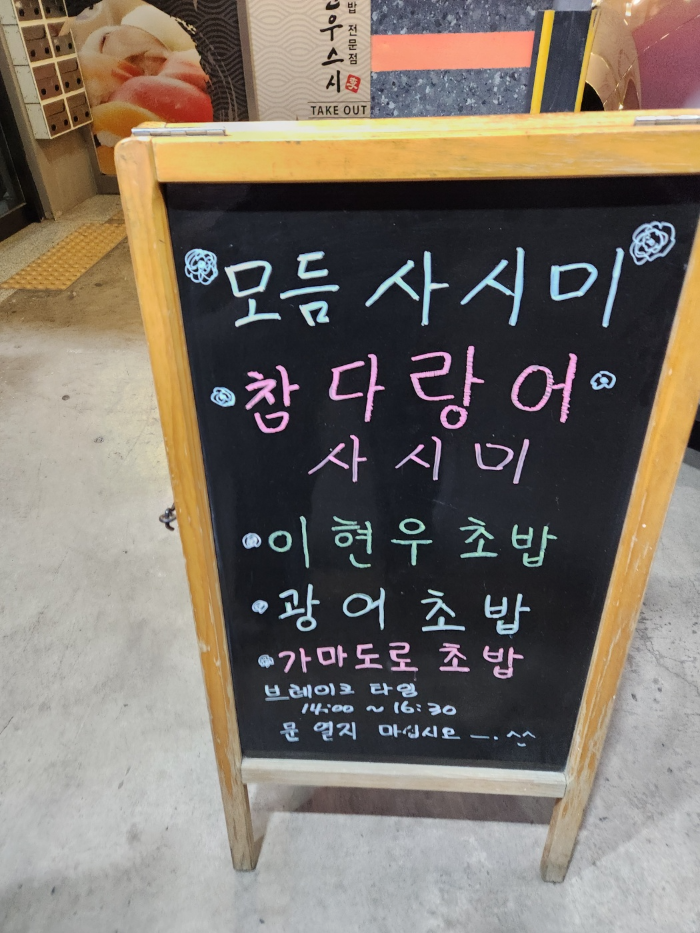 밥 전문점
우스시
TAKE OUT
모듬 사시미
참다랑어
사시미
이현우 초밥
광어 초밥
가마도로 초밥
브레이크 타임
14:00 ~ 16:30
문 열지 마십시오 —. ^^